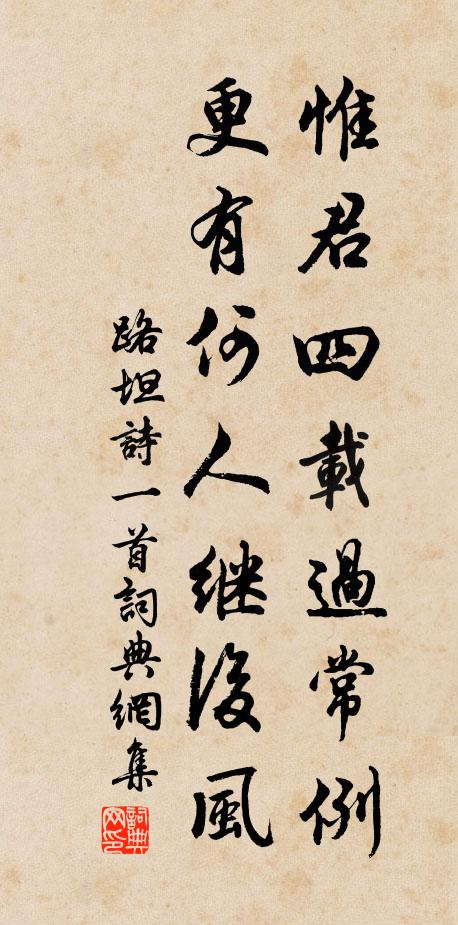 惟君四載過常例
更有何人継後風
路坦詩一首詞典網集
詞典網印